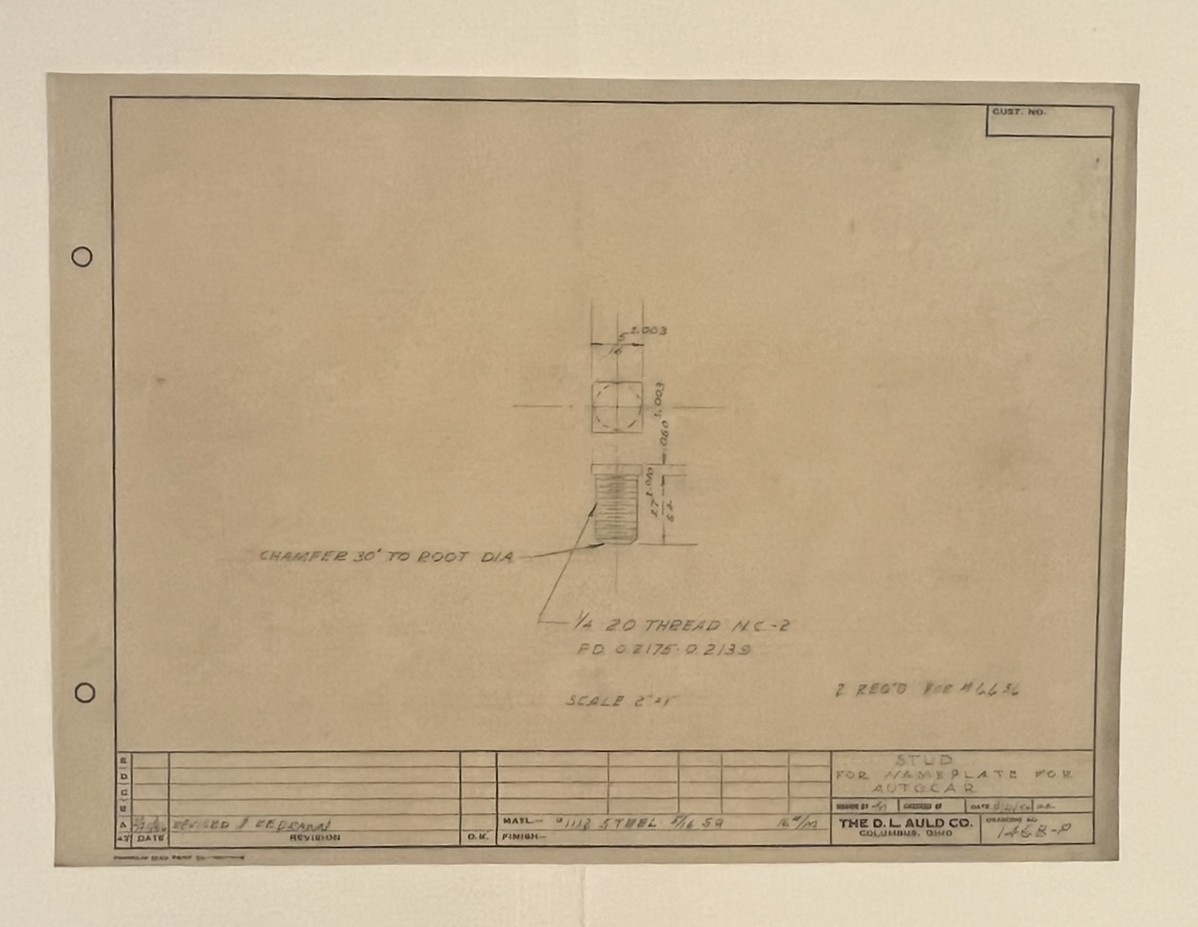 CUST. NO.
5/16 ±.003
.060 ±.003
27/64 ±.010
CHAMFER 30° TO ROOT DIA
1/4 20 THREAD N.C-2
P.D. 0.2175-0.2139
SCALE 2"=1"
2 REQ'D FOR
E
D
C
B
A REVISED & REDRAWN
DATE REVISION O.K.
MATL.— #1112 STEEL 5/16 SQ
FINISH—
STUD
FOR NAMEPLATE FOR
AUTOCAR
DATE
THE D. L. AULD CO.
COLUMBUS, OHIO
DRAWING NO.
1468-P